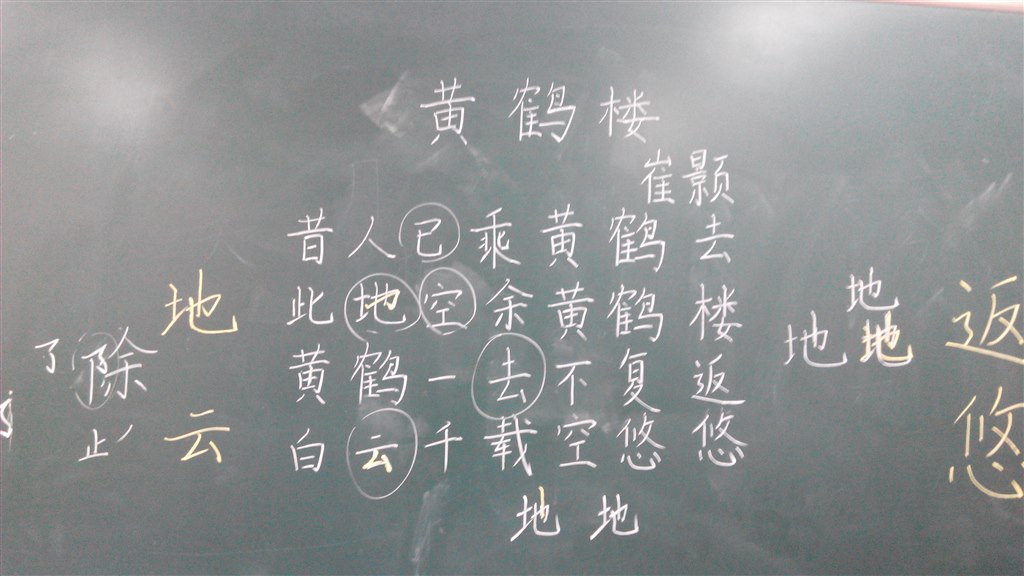 黄鹤楼
崔颢
昔人已乘黄鹤去
此地空余黄鹤楼
黄鹤一去不复返
白云千载空悠悠
地地
地
云
了除
止
地
地地
返
悠